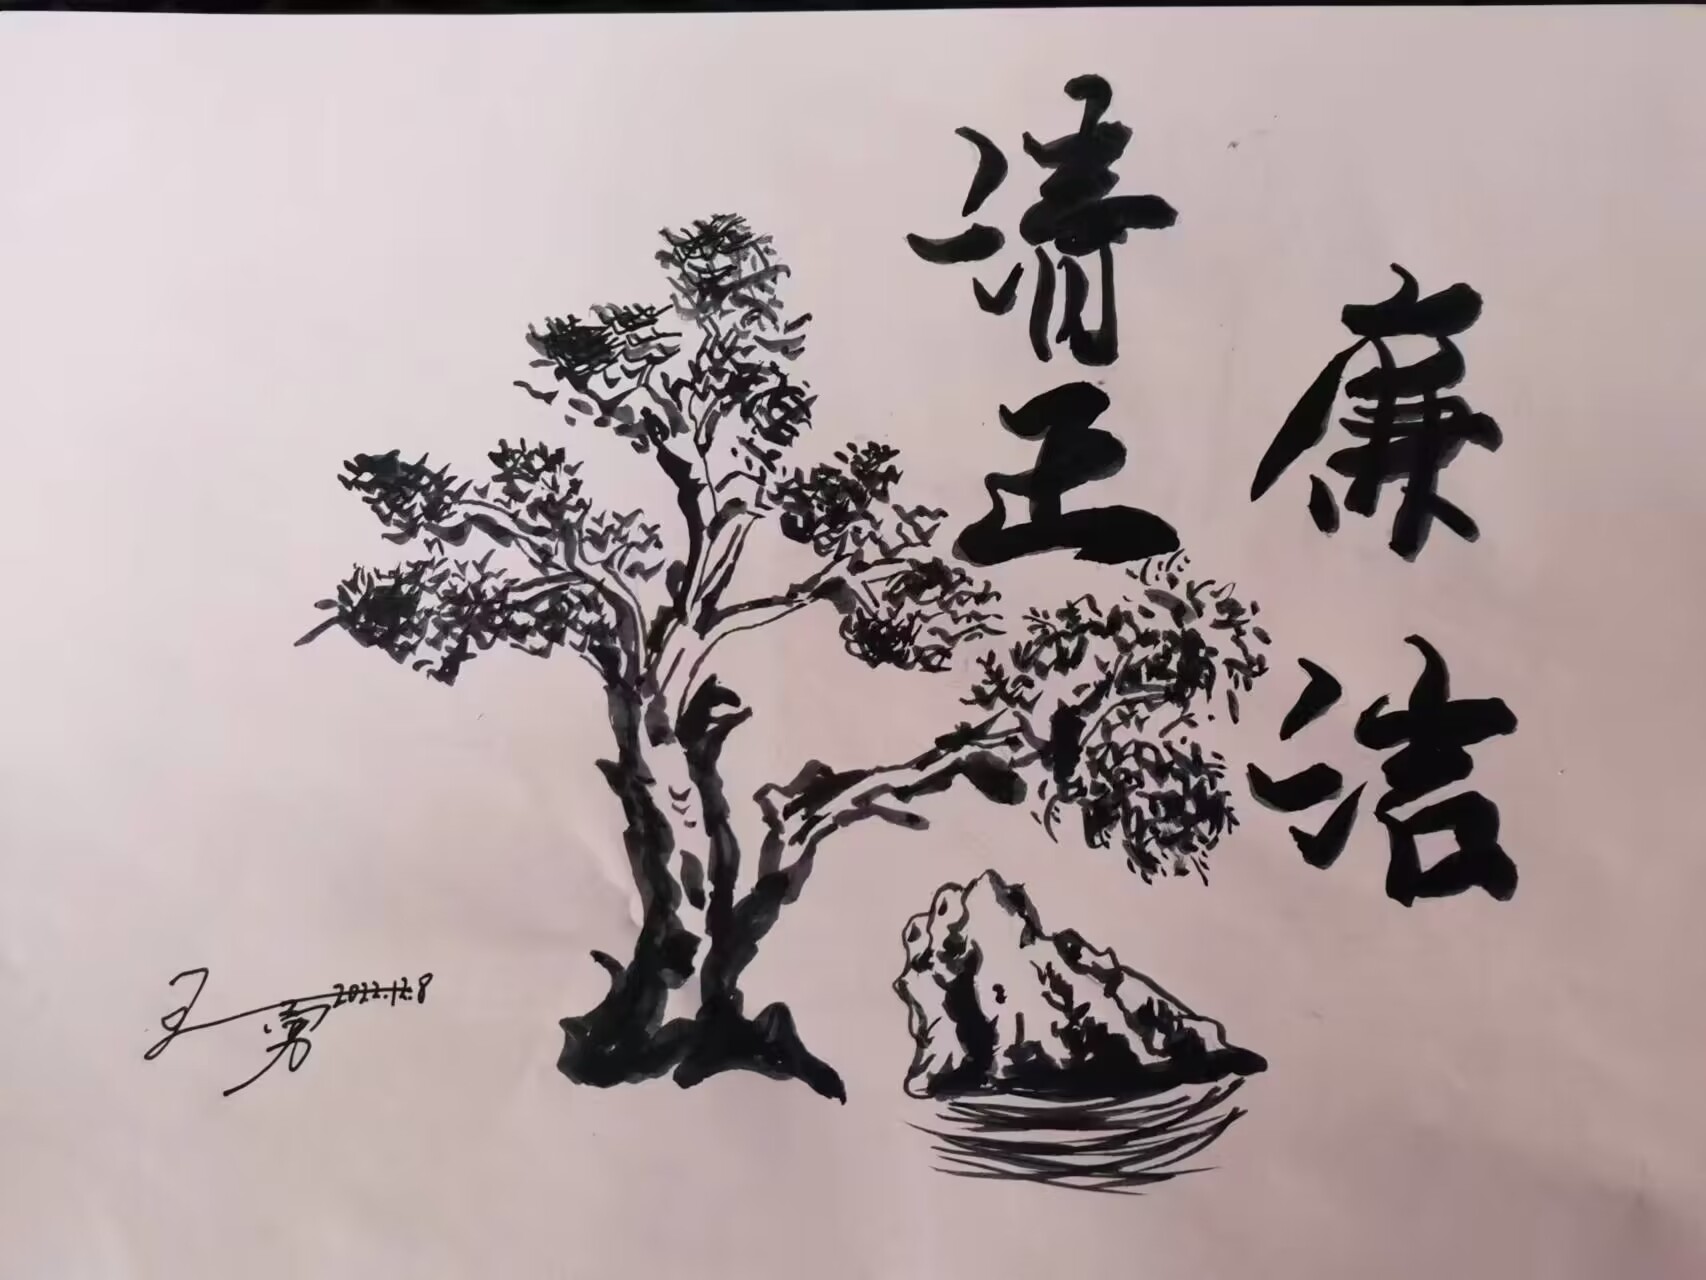 廉洁
清正
王勇 2022.12.8